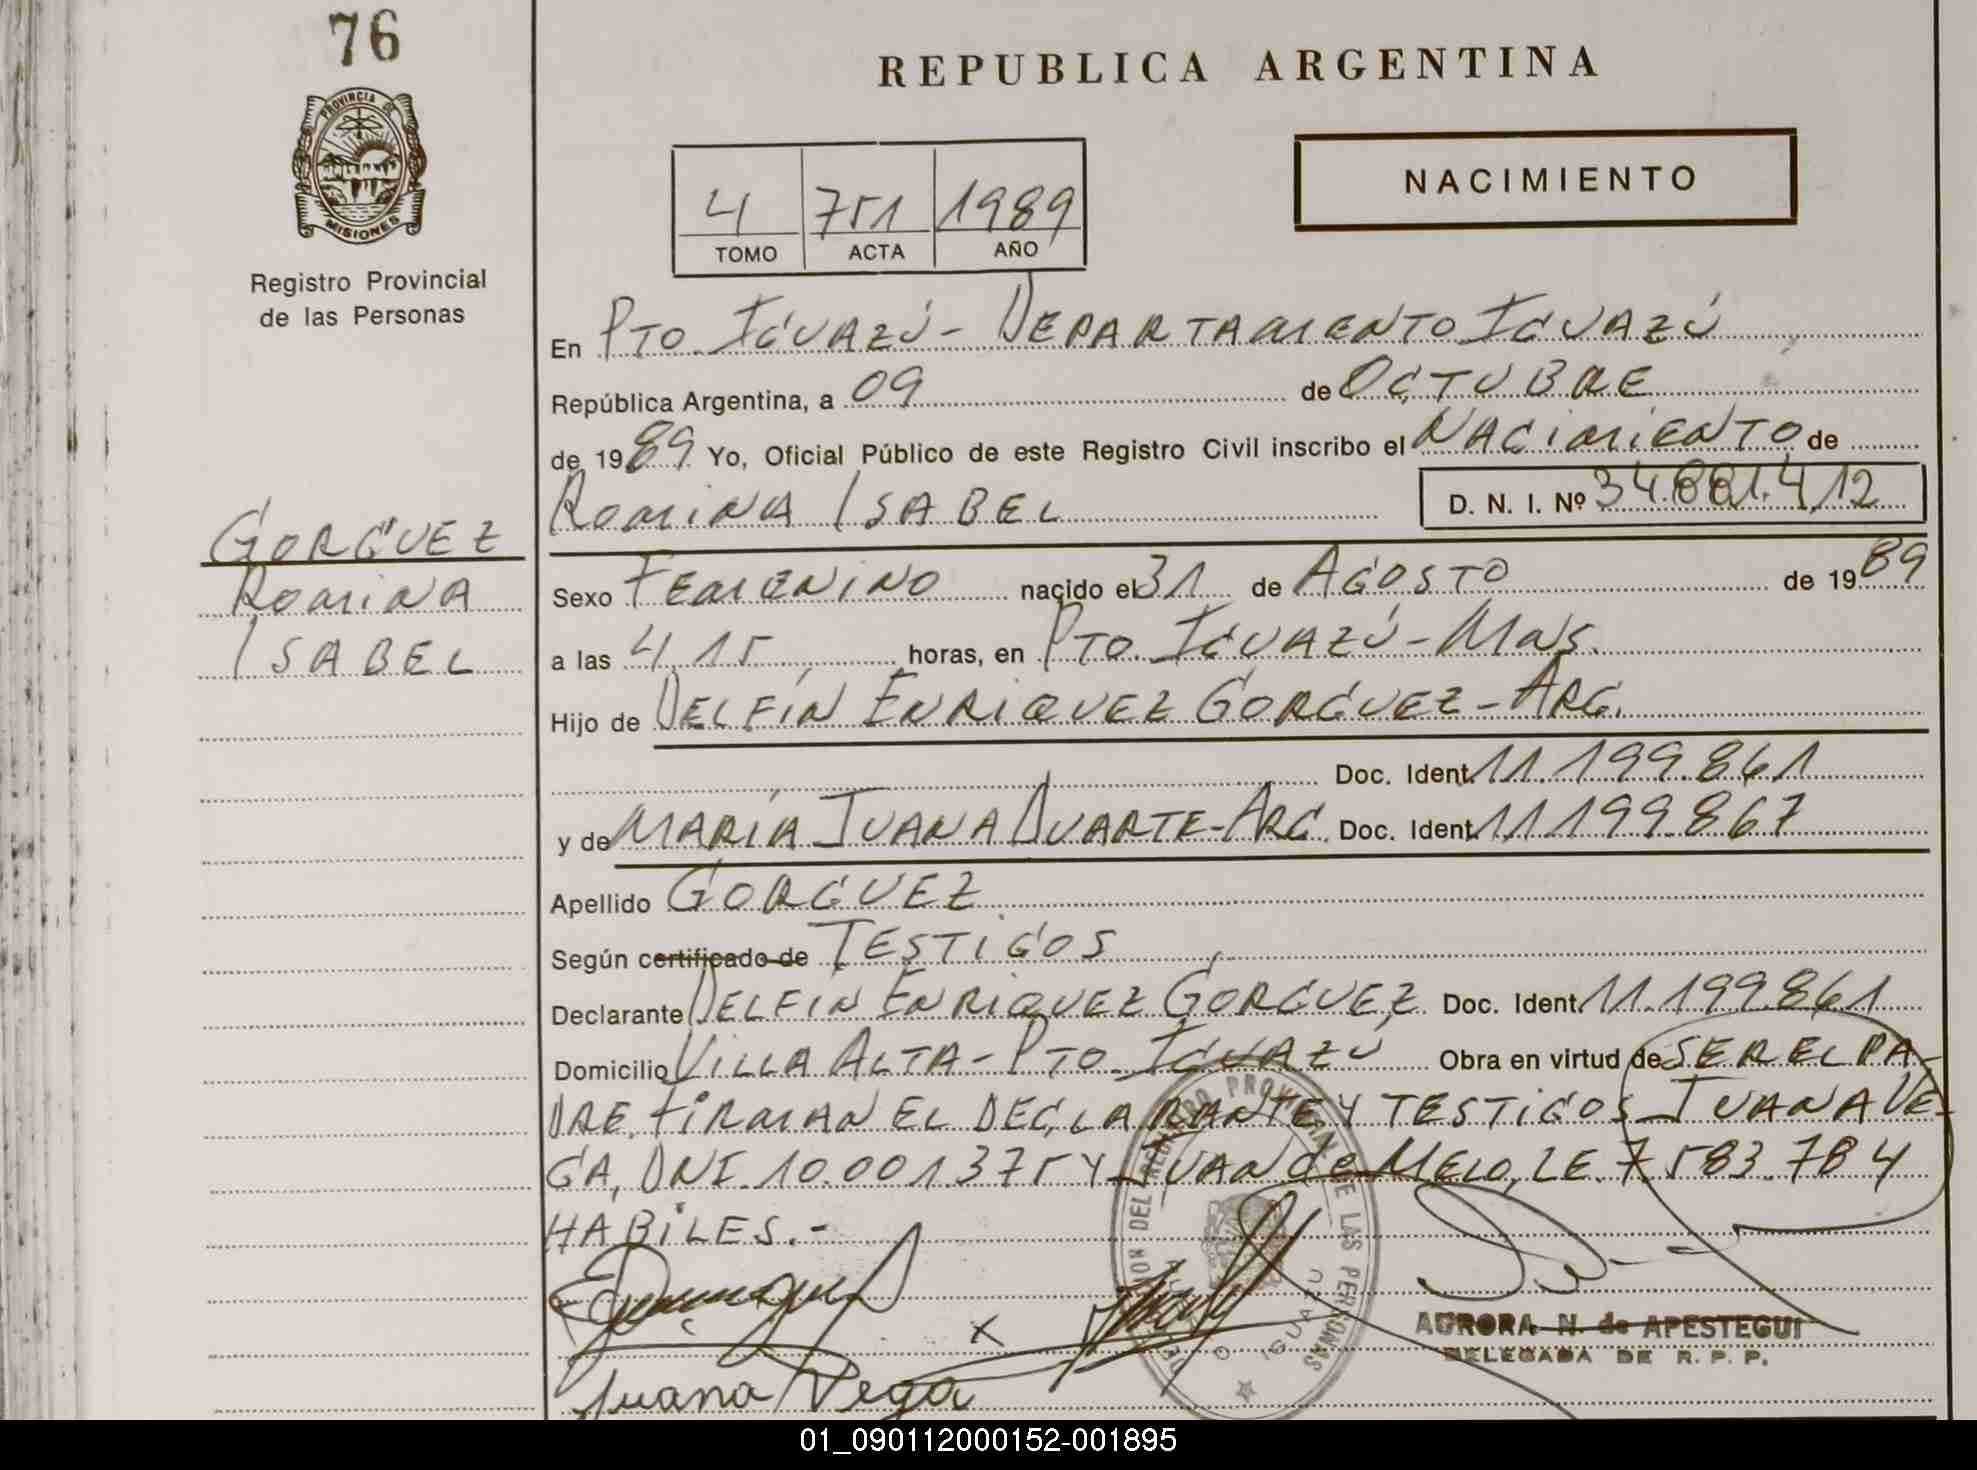 76
PROVINCIA DE
MISIONES
Registro Provincial
de las Personas
REPUBLICA ARGENTINA
NACIMIENTO
4 751 1989
TOMO ACTA AÑO
En PTO. IGUAZÚ - DEPARTAMENTO IGUAZÚ
República Argentina, a 09 de OCTUBRE
de 1989 Yo, Oficial Público de este Registro Civil inscribo el NACIMIENTO de
ROMINA ISABEL D. N. I. Nº 34.881.412
GORGUEZ
ROMINA
ISABEL
Sexo FEMENINO nacido el 31 de AGOSTO de 1989
a las 4,15 horas, en PTO. IGUAZÚ - MNS.
Hijo de DELFÍN ENRIQUEZ GORGUEZ - ARG.
Doc. Ident. 11.199.861
y de MARÍA JUANA DUARTE - ARG. Doc. Ident. 11.199.867
Apellido GORGUEZ
Según certificado de TESTIGOS
Declarante DELFÍN ENRIQUEZ GORGUEZ Doc. Ident. 11.199.861
Domicilio VILLA ALTA - PTO. IGUAZÚ Obra en virtud de SER EL PA-
DRE. FIRMAN EL DECLARANTE Y TESTIGOS JUANA VE-
GA, DNI. 10.001.375 Y JUAN de MELO, LE. 7.583.784
HABILES.-
X
AURORA N. de APESTEGUI
DELEGADA DE R. P. P.
Juana Vega
DEL REGISTRO PROVINCIAL DE LAS PERSONAS
IGUAZU
01_090112000152-001895